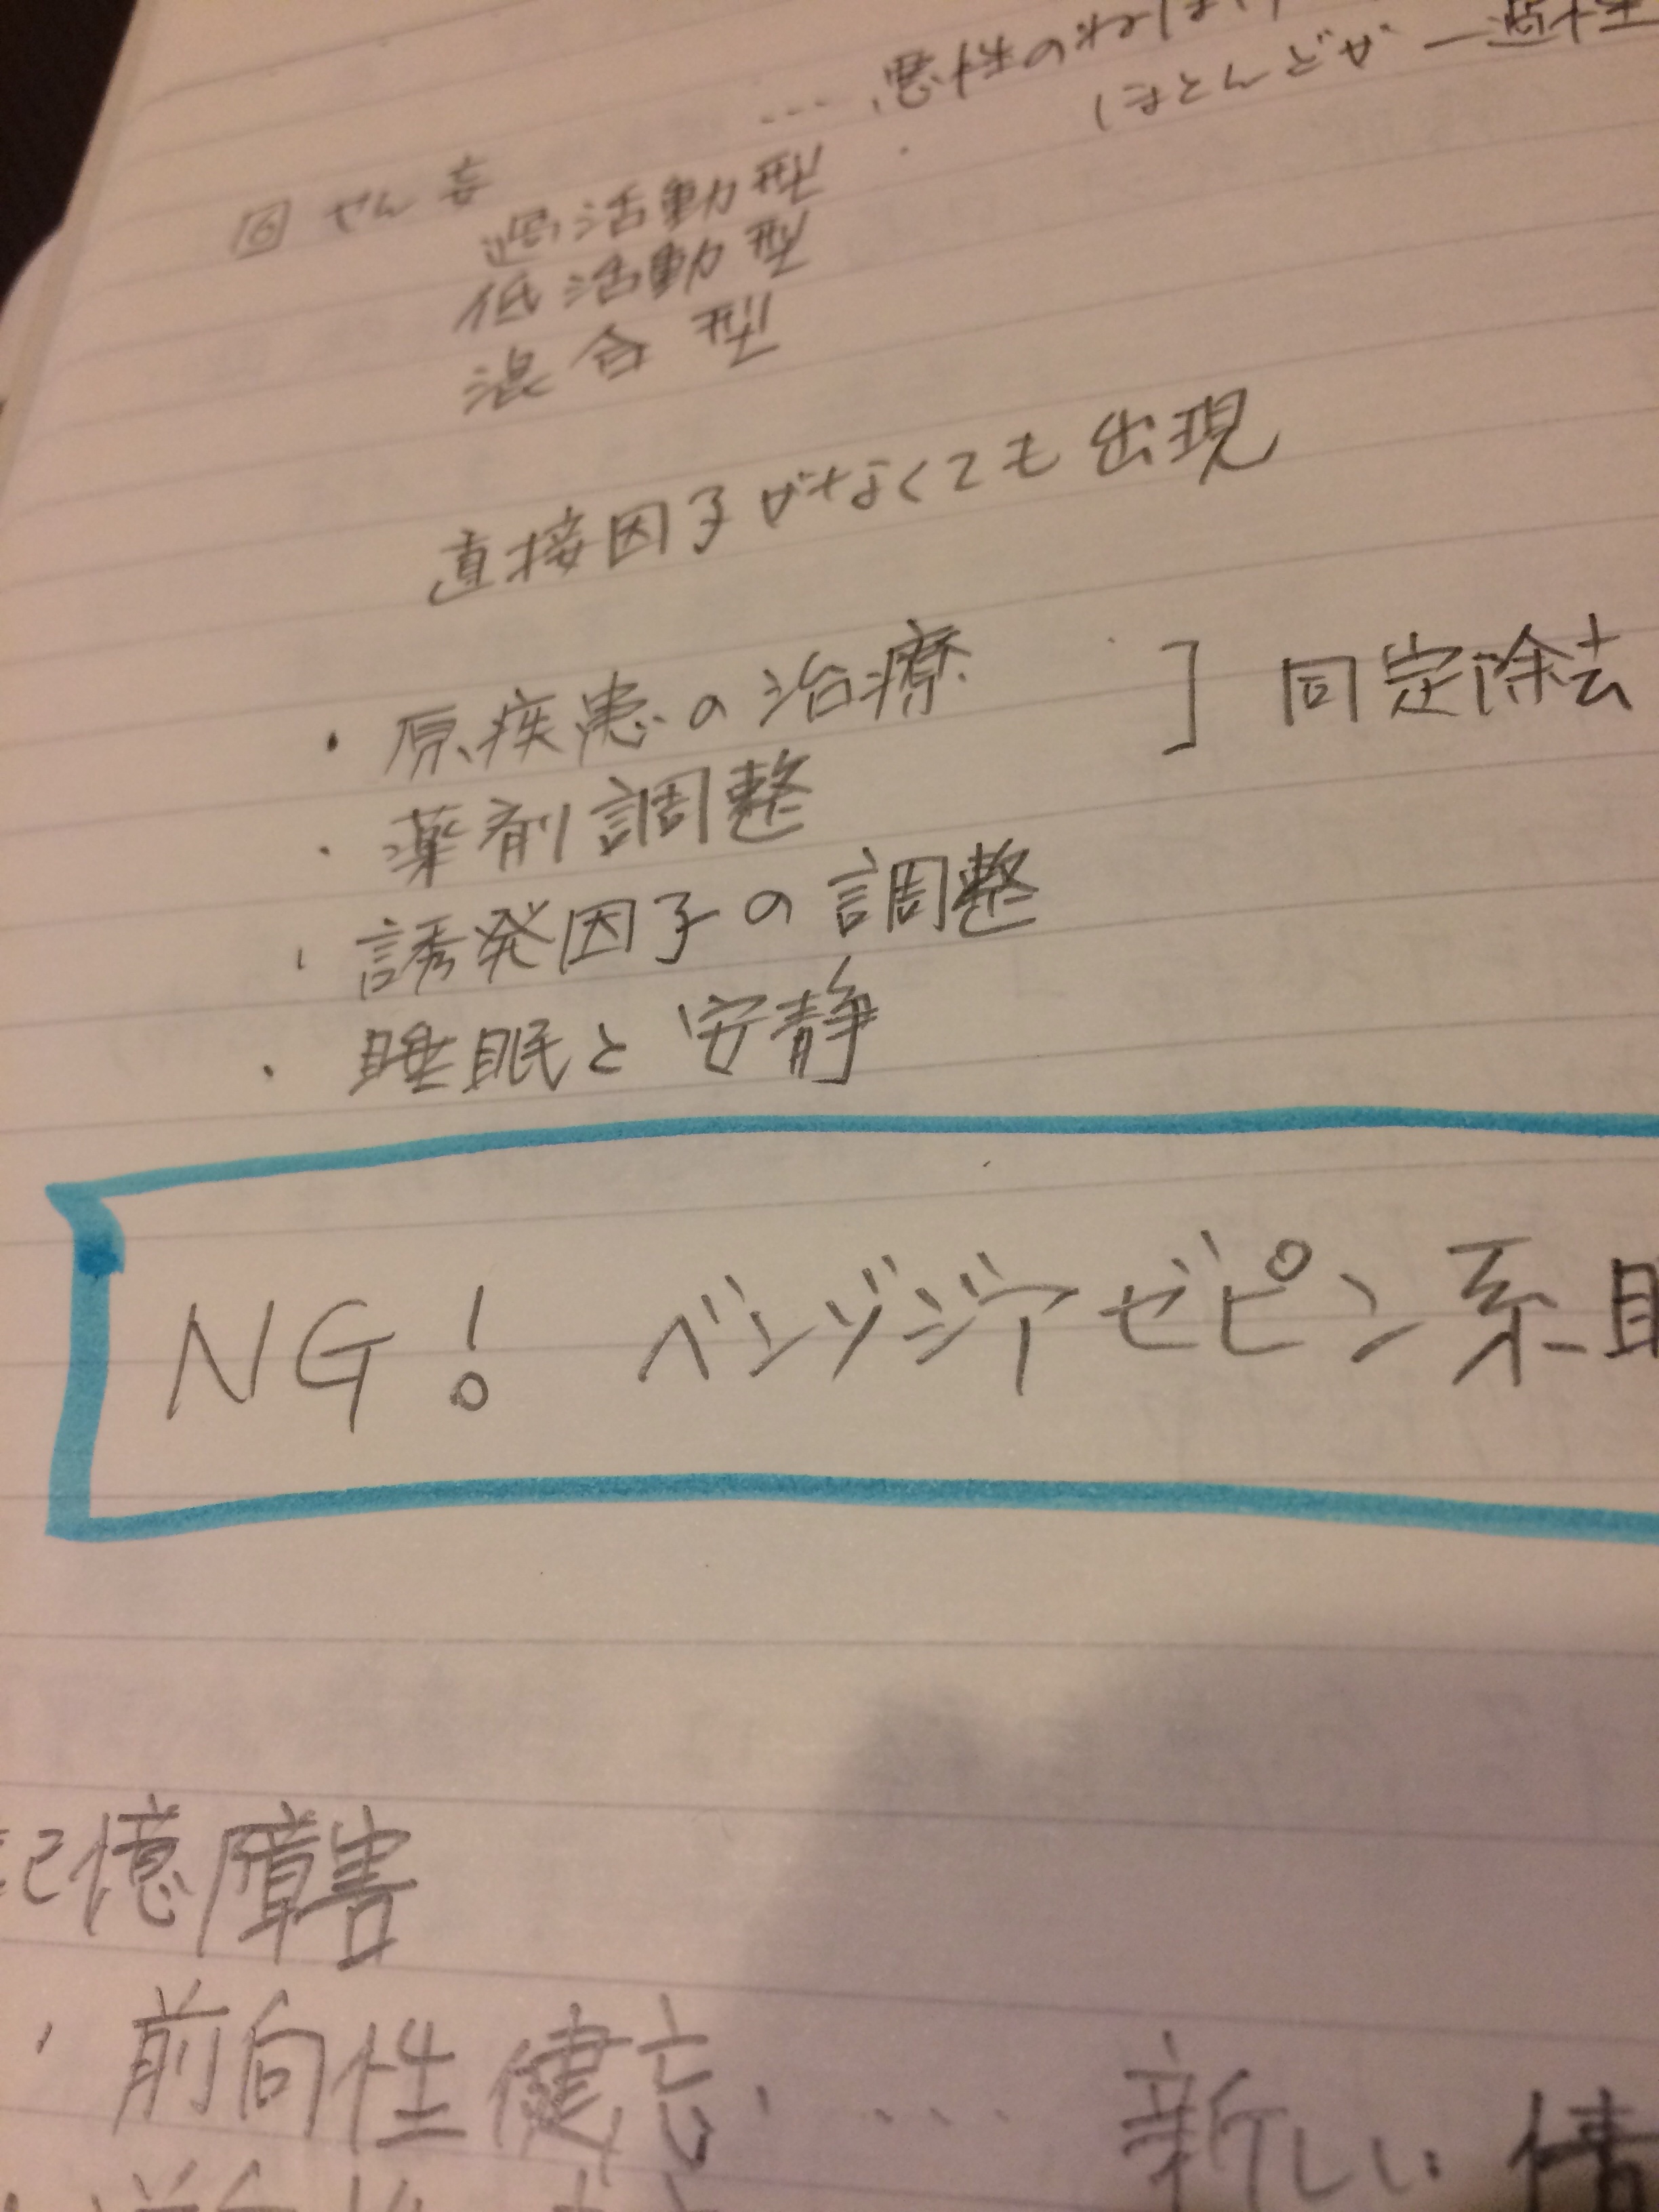 ... 悪性のねむけ
ほとんどが一過性
⑥ せん妄
過活動型
低活動型
混合型
直接因子がなくても出現
・原疾患の治療 ] 同定除去
・薬剤調整
・誘発因子の調整
・睡眠と安静
NG! ベンゾジアゼピン系
記憶障害
・前向性健忘 .... 新しい情